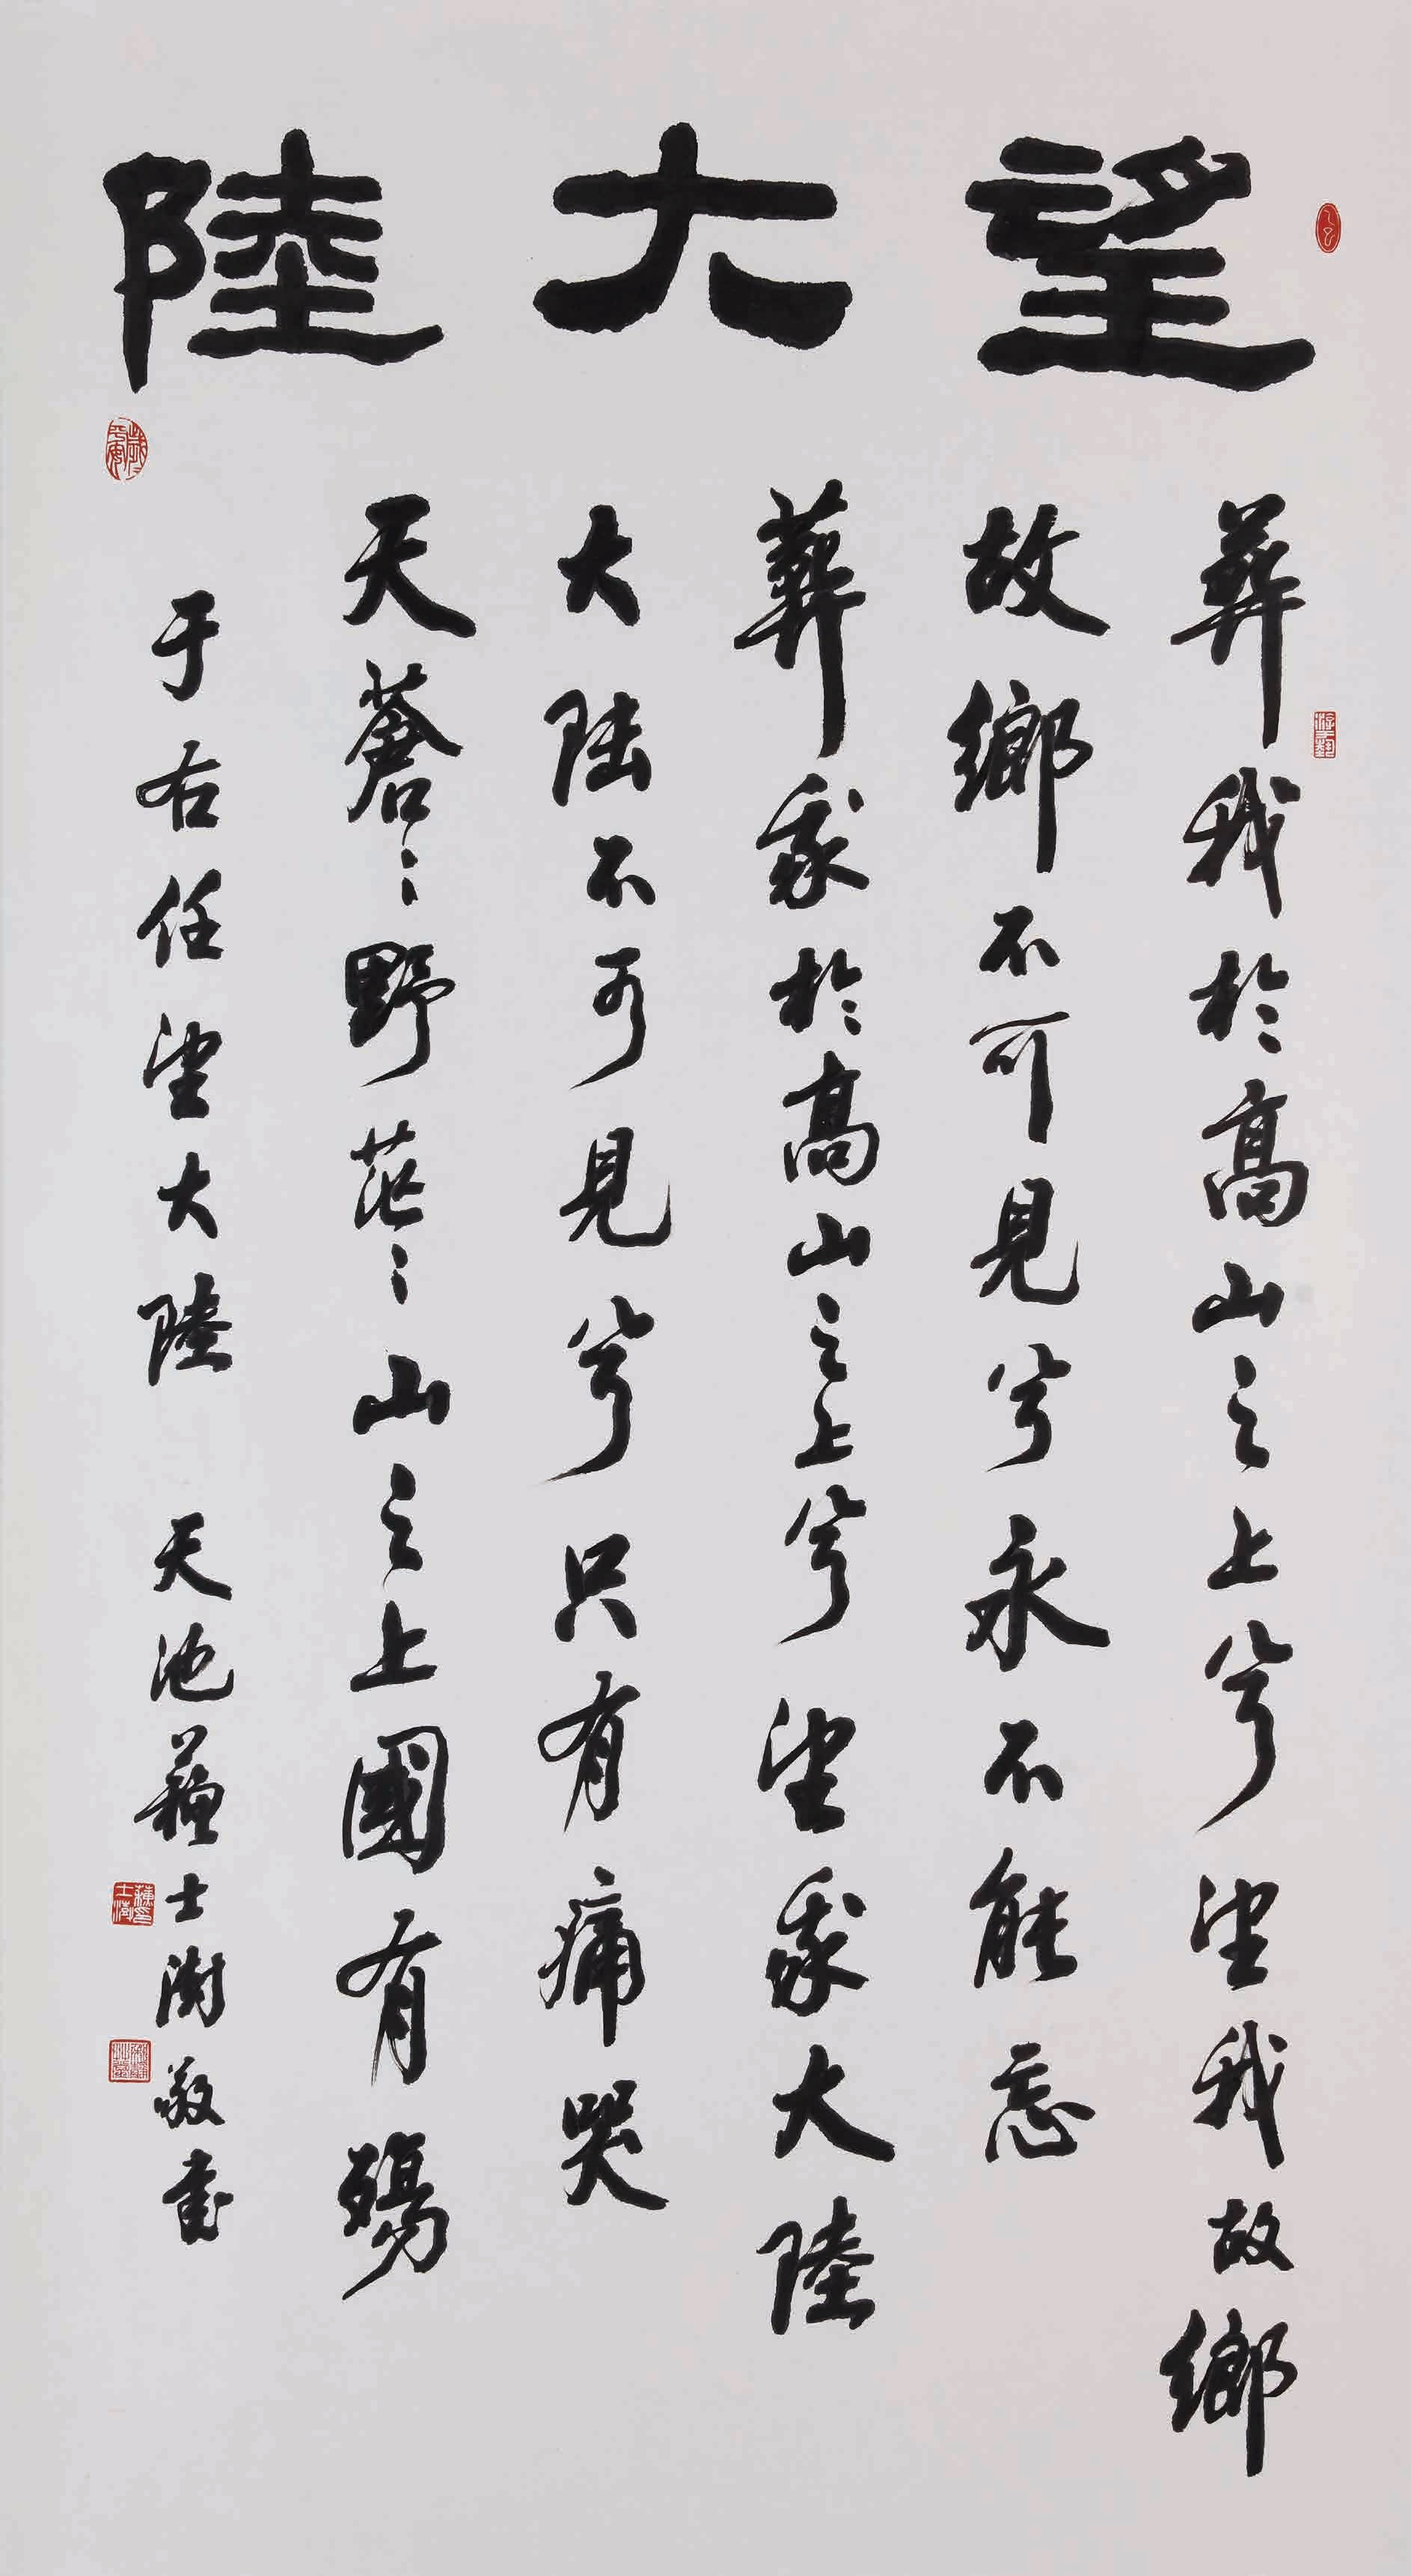 望大陸
葬我於高山之上兮望我故鄉
故鄉不可見兮永不能忘
葬我於高山之上兮望我大陸
大陆不可見兮只有痛哭
天蒼〻野茫〻山之上國有殤
于右任望大陸 天池蘇士澍敬书